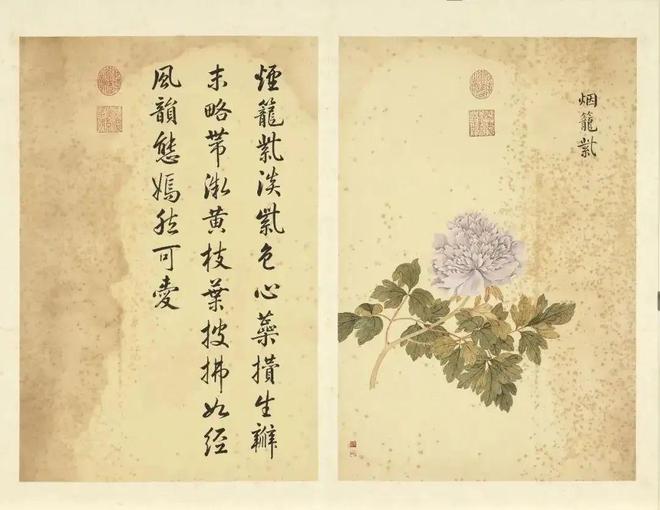 烟籠紫
煙籠紫淡紫色心蘂攢生瓣
末略帶微黄枝葉披拂如經
風韻態嫣然可愛